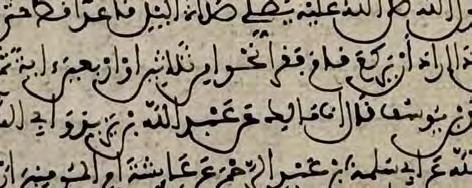 الله صلى الله عليه يصلي صلاة الليل قاعدا قط حتى
اراد ان يركع قام فقرأ نحوا من ثلثين او اربعين اية ثم
بن يوسف قال انا مالك عن عبد الله بن يزيد وابي
عن ابي سلمة بن عبد الرحمن عن عايشة ام المومنين ان